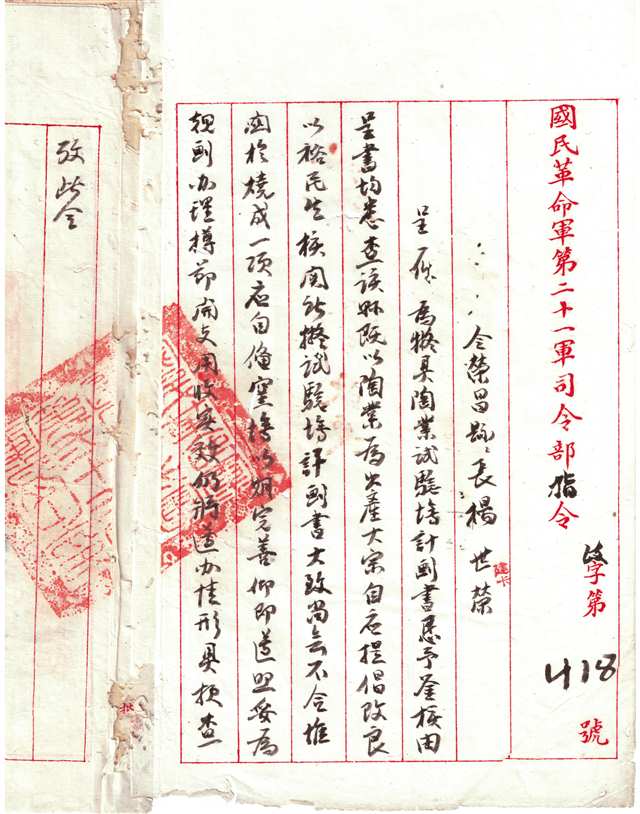 國民革命軍第二十一軍司令部指令
字第418號
令榮昌縣縣長楊世榮
呈一件為擬具陶業試驗場計劃書懇予鑒核由
呈書均悉查該縣既以陶業為出產大宗自應提倡改良
以裕民生核閱所擬試驗場計劃書大致尚無不合惟
關於燒成一項應自備窰場以期完善仰即遵照妥為
規劃辦理撙節開支用收實效仍將遵辦情形具報查
攷此令